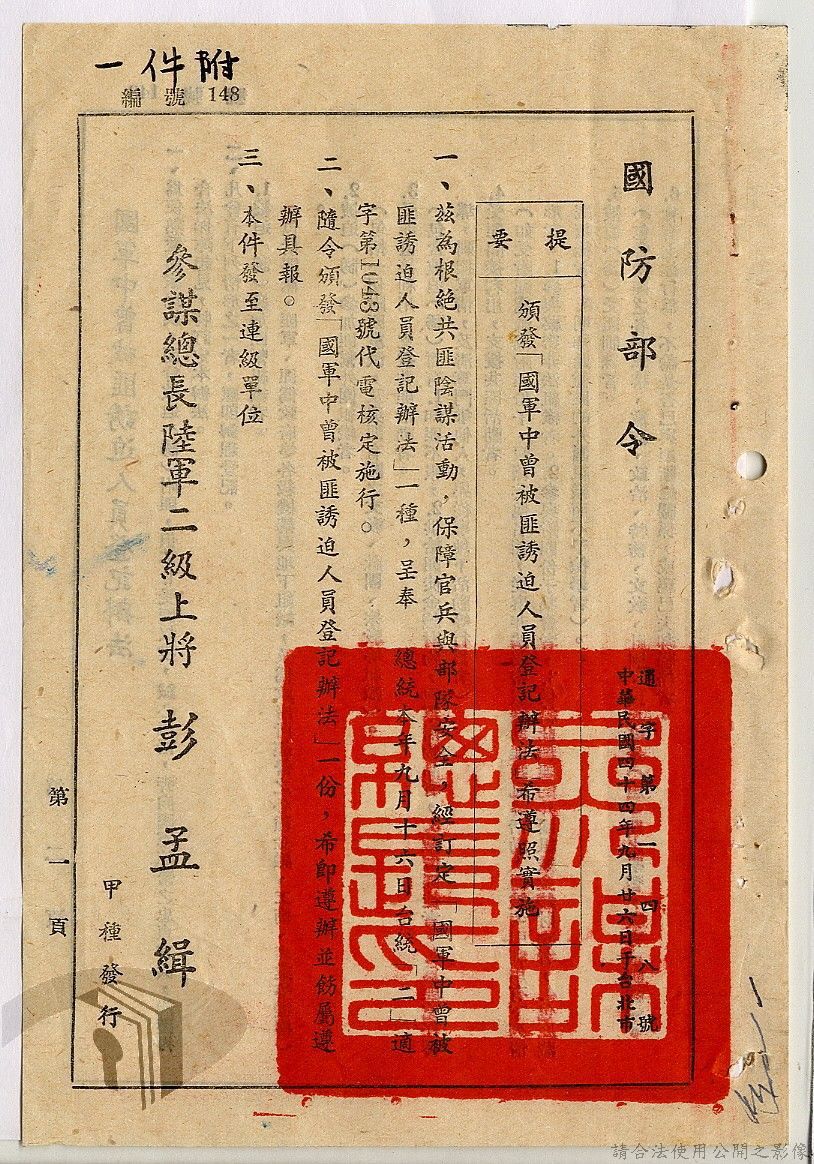 附件一
編號 148
國防部令
適字第一四八號
中華民國四十四年九月廿六日于台北市
提要
頒發「國軍中曾被匪誘迫人員登記辦法」希遵照實施
一、茲為根絕共匪陰謀活動，保障官兵與部隊安全，經訂定「國軍中曾被
匪誘迫人員登記辦法」一種，呈奉　總統本年九月十六日台統「二」適
字第1048號代電核定施行。
二、隨令頒發「國軍中曾被匪誘迫人員登記辦法」一份，希即遵辦並飭屬遵
辦具報。
三、本件發至連級單位
參謀總長陸軍二級上將 彭孟緝
甲種發行
第一頁
請合法使用公開之影像